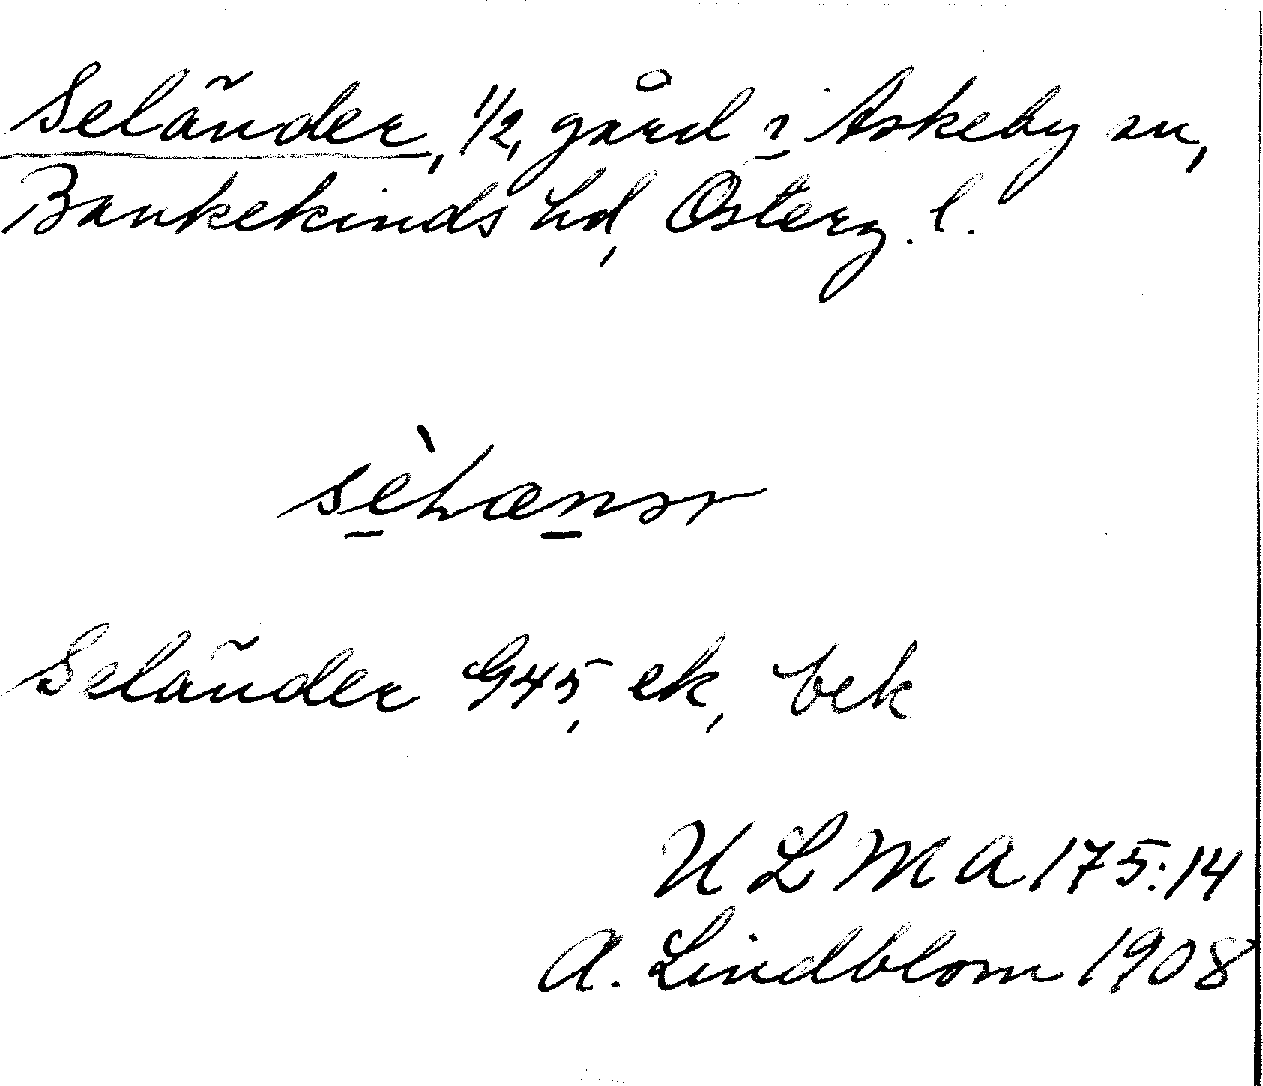 Seländer, 1/2, gård i Askeby sn,
Bankekinds hd, Österg. l.
Seländer G45, ek, bek
ULMA 175:14
A. Lindblom 1908